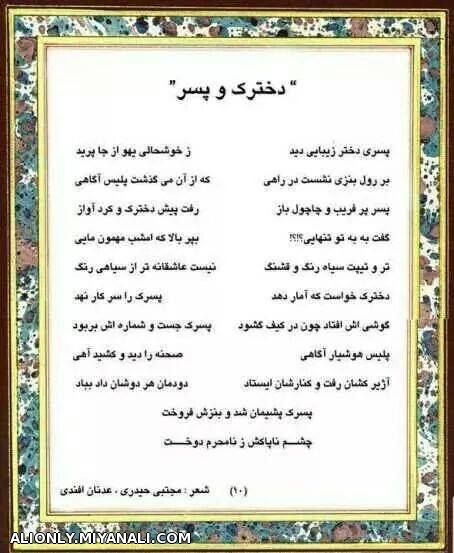 “ دخترک و پسر”
پسری دختر زیبایی دید ز خوشحالی یهو از جا پرید
بر رول بنزی نشست در راهی که از آن می گذشت پلیس آگاهی
پسر پر فریب و چاچول باز رفت پیش دخترک و کرد آواز
گفت به به تو تنهایی؟!؟! بپر بالا که امشب مهمون مایی
تر و تیپت سیاه رنگ و قشنگ نیست عاشقانه تر از سیاهی رنگ
دخترک خواست که آمار دهد پسرک را سر کار نهد
گوشی اش افتاد چون در کیف گشود پسرک جست و شماره اش بربود
پلیس هوشیار آگاهی صحنه را دید و کشید آهی
آژیر کشان رفت و کنارشان ایستاد دودمان هر دوشان داد بباد
پسرک پشیمان شد و بنزش فروخت
چشم ناپاکش ز نامحرم دوخت
شعر : مجتبی حیدری ، عدنان افندی (۱۰)
ALIONLY.MIYANALI.COM